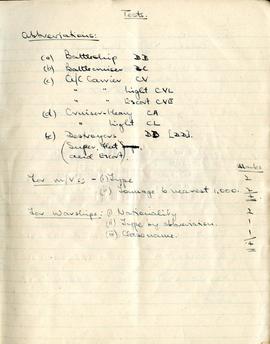 Tests.
Abbreviations:
(a) Battleship BB
(b) Battlecruiser BC
(c) A/C Carrier CV
" " Light CVL
" " Escort CVE
(d) Cruiser-Heavy CA
" Light CL
(e) Destroyers DD [DD].
(Super, Fleet)
and Escort.
Marks
For m/Vs:- (i) Type 2
(ii) Tonnage to nearest 1,000. 2
For Warships: (i) Nationality
(ii) Type by abbreviation.
(iii) Class name.